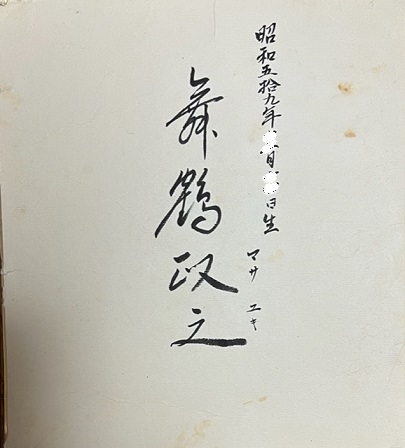 昭和五拾九年月日生
マサ ユキ
舞鶴政之